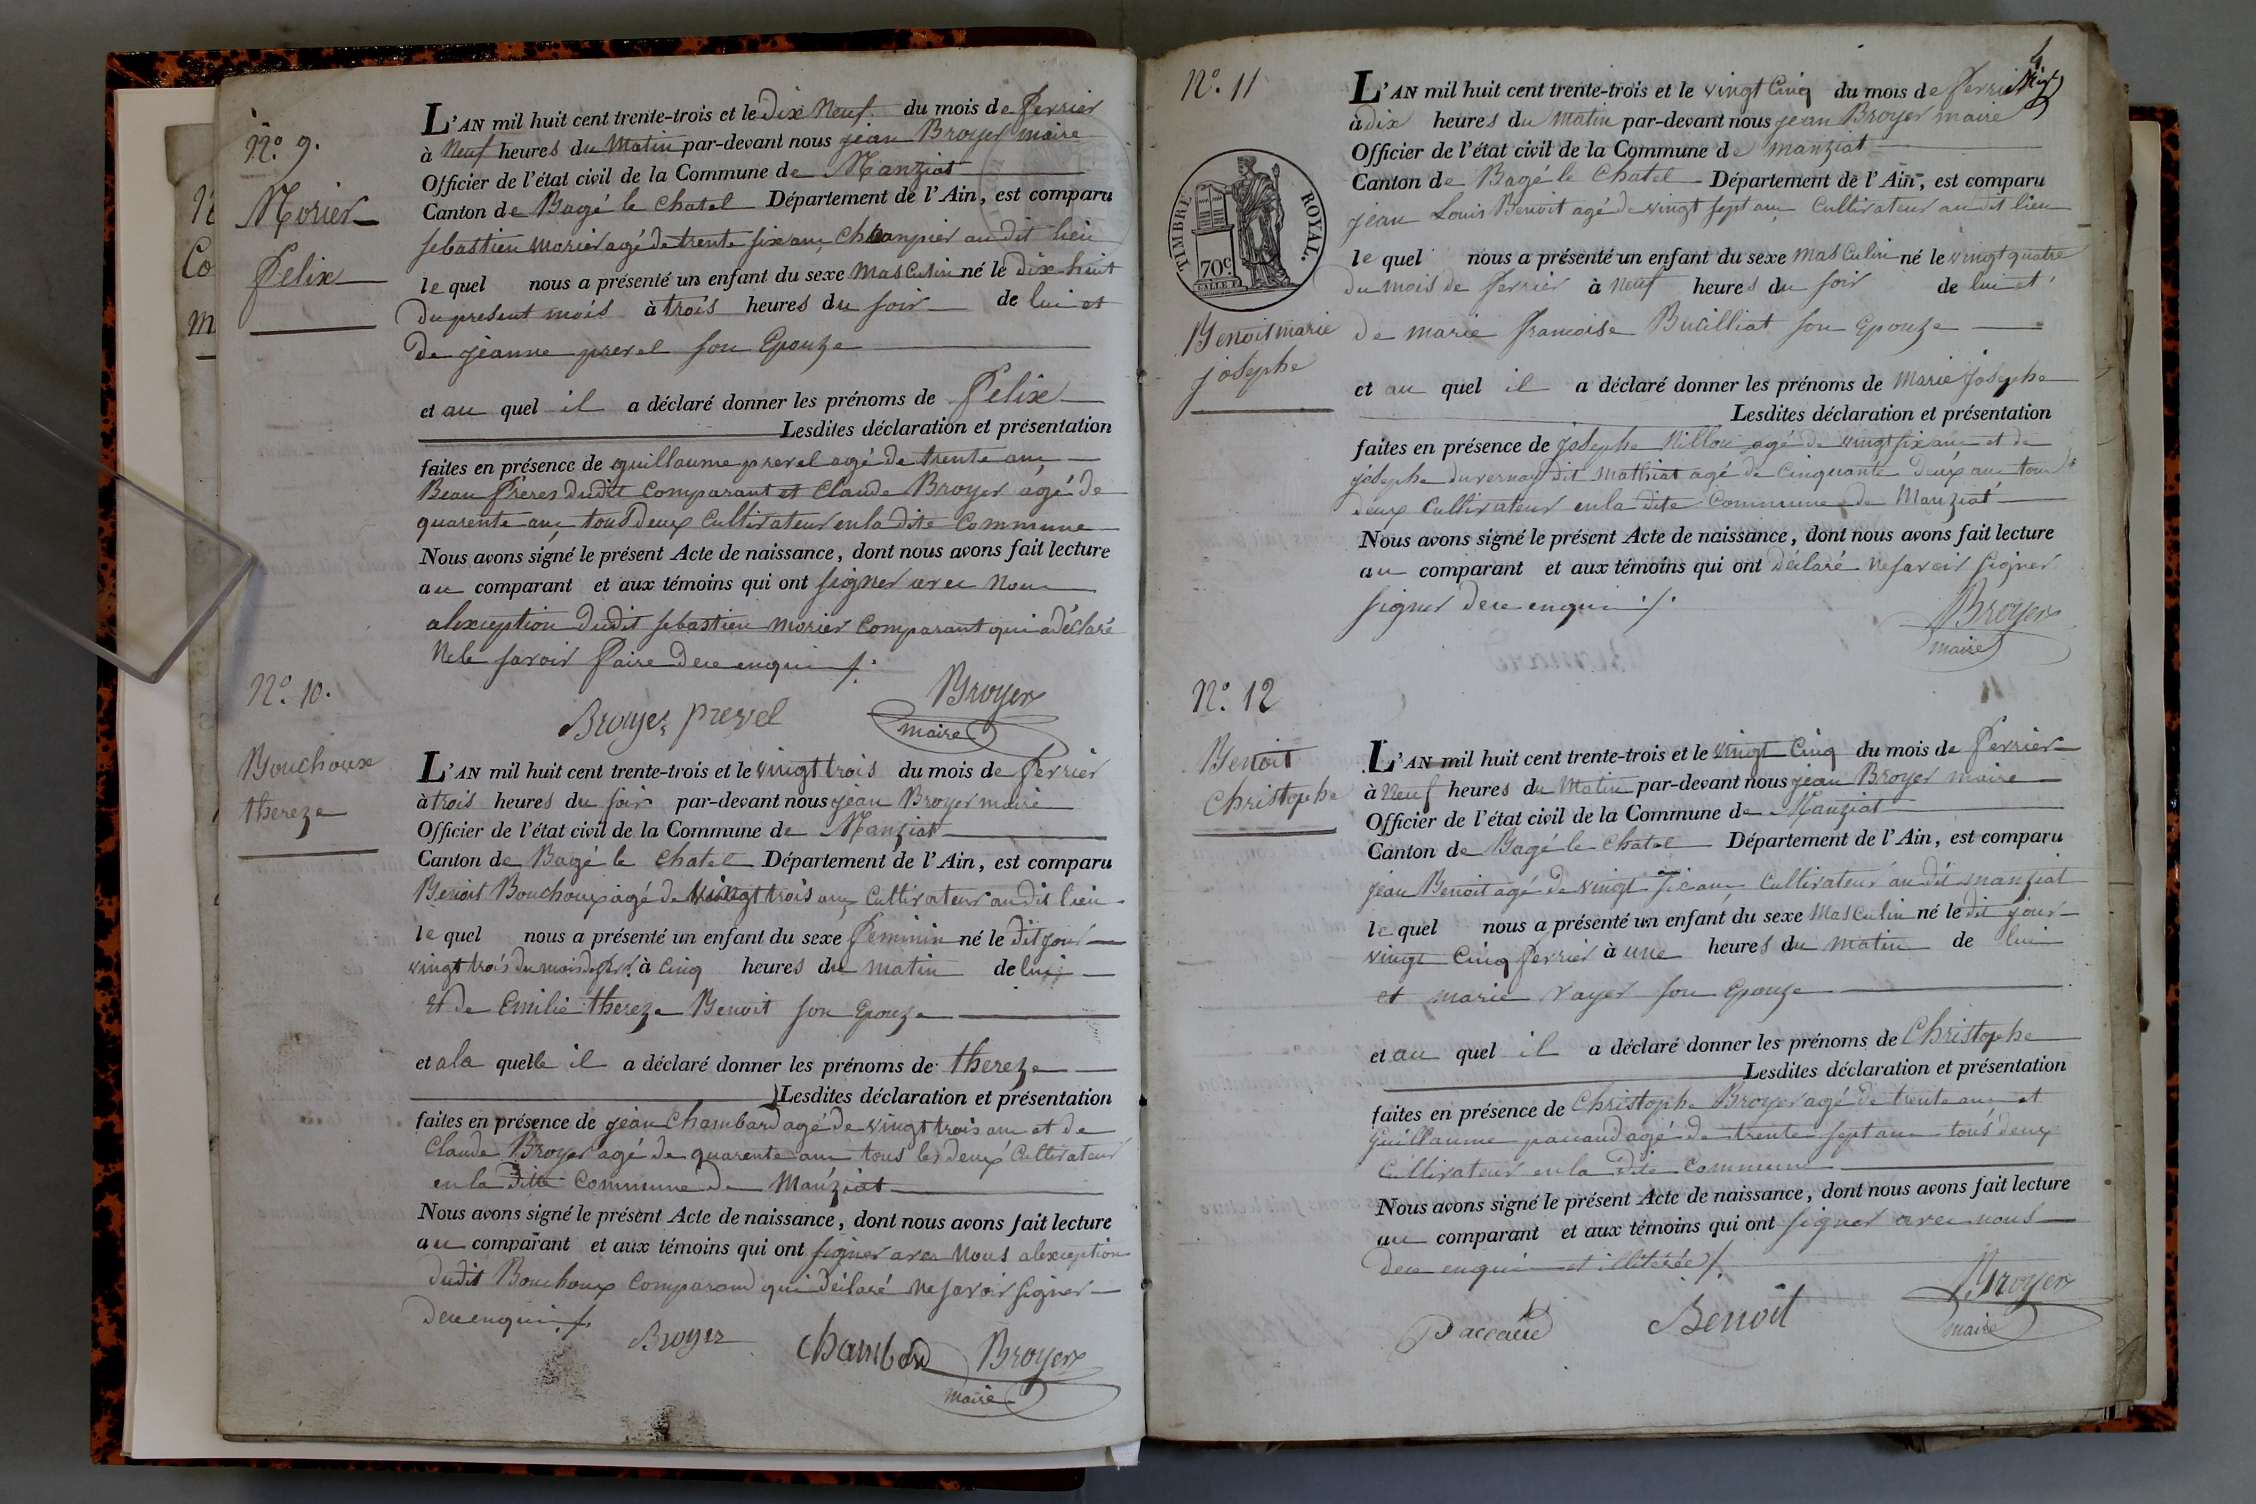 N.o 9.
Morier
Felix
L'AN mil huit cent trente-trois et le Dix Neuf du mois de Fevrier
à Neuf heures du Matin par-devant nous jean Broyer maire
Officier de l'état civil de la Commune de Manziat
Canton de Bagé le Chatel Département de l'Ain, est comparu
sebastien morier agé de trente six ans au dit lieu
le quel nous a présenté un enfant du sexe masculin né le dix-huit
du present mois à trois heures du soir de lui et
de jeanne prevel son Epouze
et au quel il a déclaré donner les prénoms de Felix
Lesdites déclaration et présentation
faites en présence de guillaume prevel agé de trente ans
Beau freres dudit Comparant et Claude Broyer agé de
quarente ans tous deux Cultivateur en la dite Commune
Nous avons signé le présent Acte de naissance, dont nous avons fait lecture
au comparant et aux témoins qui ont signer avec nous
alexception dudit sebastien morier Comparant qui a déclaré
ne le savoir faire dece enquis
Broyer prevel Broyer
maire
N.o 10.
Bouchoux
thereze
L'AN mil huit cent trente-trois et le vingt trois du mois de Fevrier
à trois heures du soir par-devant nous jean Broyer maire
Officier de l'état civil de la Commune de Manziat
Canton de Bagé le Chatel Département de l'Ain, est comparu
Benoit Bouchoux agé de vingt trois ans Cultivateur au dit lieu
le quel nous a présenté un enfant du sexe Feminin né le dit jour
vingt trois du mois de fevr. à Cinq heures du matin de lui
et de Emilie thereze Benoit son Epouze
et a la quelle il a déclaré donner les prénoms de thereze
Lesdites déclaration et présentation
faites en présence de jean Chambard agé de vingt trois ans et de
Claude Broyer agé de quarente ans tous les deux Cultivateur
en la ditte Commune de Manziat
Nous avons signé le présent Acte de naissance, dont nous avons fait lecture
au comparant et aux témoins qui ont signer avec nous alexception
dudit Bouchoux Comparand qui déclaré ne savoir signer
dece enquis
Broyer Chambard Broyer
maire
N.o 11
TIMBRE ROYAL.
70c
Benoit marie
josephe
L'AN mil huit cent trente-trois et le vingt Cinq du mois de fevrier
à dix heures du Matin par-devant nous jean Broyer maire
Officier de l'état civil de la Commune de manziat
Canton de Bagé le Chatel Département de l'Ain, est comparu
jean Louis Benoit agé de vingt sept ans Cultivateur au dit lieu
le quel nous a présenté un enfant du sexe masculin né le vingt quatre
du mois de fevrier à neuf heures du soir de lui et
de marie francoise Bucilliat son Epouze
et au quel il a déclaré donner les prénoms de Marie Josephe
Lesdites déclaration et présentation
faites en présence de josephe Nillon agé de vingt six ans et de
josephe duvernay dit Mathiat agé de Cinquante deux ans tous
deux Cultivateur en la dite Commune de Manziat
Nous avons signé le présent Acte de naissance, dont nous avons fait lecture
au comparant et aux témoins qui ont déclaré ne savoir signer
signer dece enquis
Broyer
maire
N.o 12
Benoit
Christophe
L'AN mil huit cent trente-trois et le vingt Cinq du mois de Fevrier
à Neuf heures du Matin par-devant nous jean Broyer maire
Officier de l'état civil de la Commune de Manziat
Canton de Bagé le Chatel Département de l'Ain, est comparu
jean Benoit agé de vingt ans Cultivateur au dit manziat
le quel nous a présenté un enfant du sexe Masculin né le dit jour
vingt Cinq Fevrier à une heures du matin de lui
et marie rayer son Epouze
et au quel il a déclaré donner les prénoms de Christophe
Lesdites déclaration et présentation
faites en présence de Christophe Broyer agé de trente ans et
Guillaume paccaud agé de trente sept ans tous deux
Cultivateur en la dite Commune
Nous avons signé le présent Acte de naissance, dont nous avons fait lecture
au comparant et aux témoins qui ont signer avec nous
dece enquis et
Benoit Broyer
maire